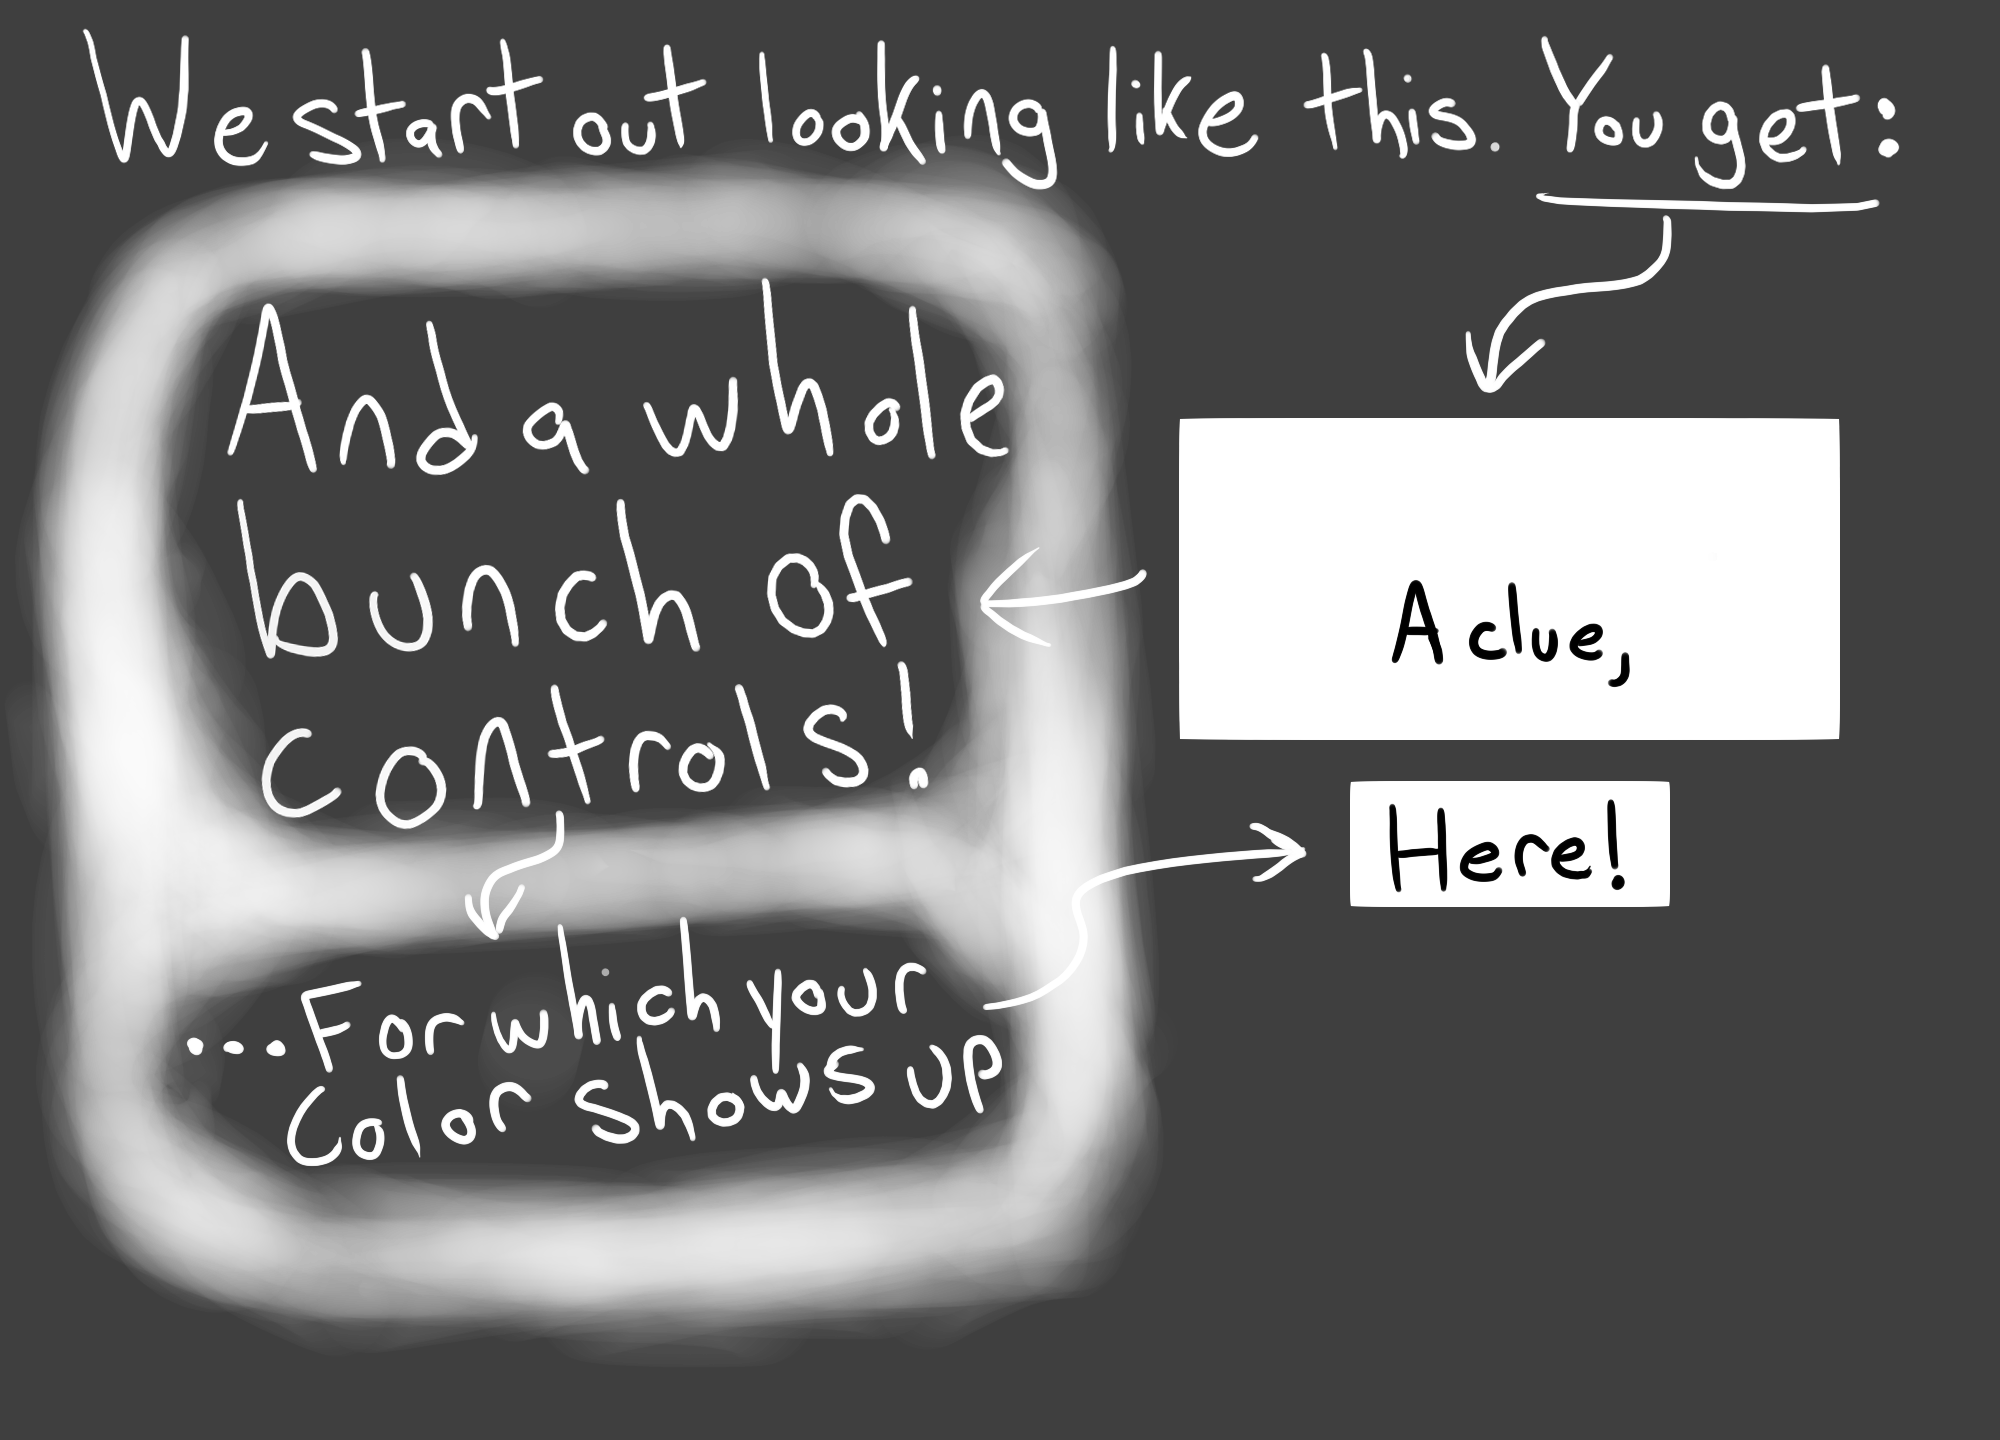 We start out looking like this. You get:
A clue,
And a whole
bunch of
controls!
...For which your
Color shows up
Here!